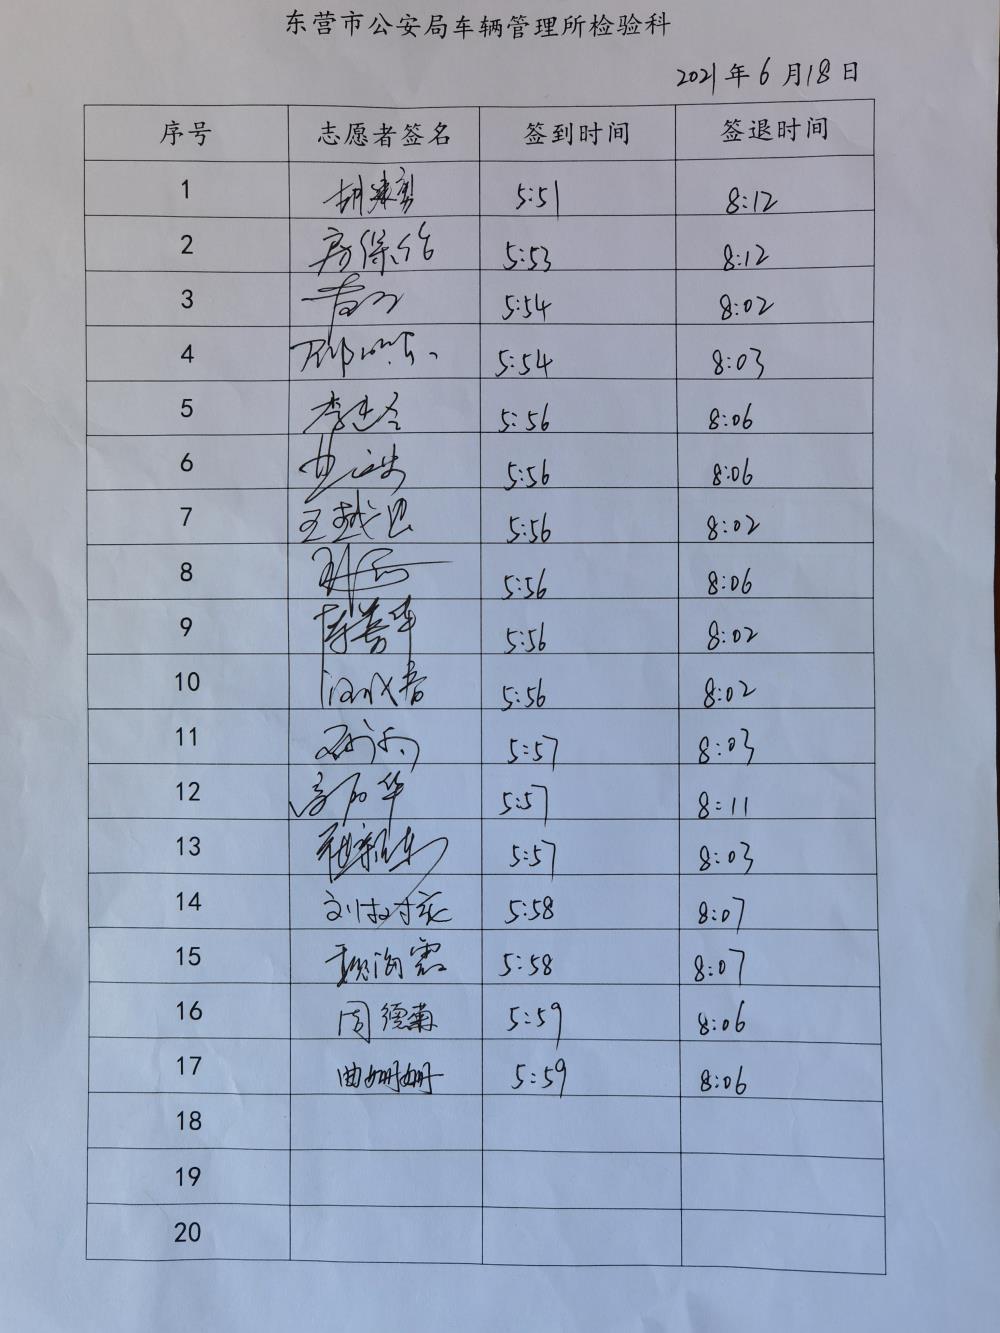 东营市公安局车辆管理所检验科
2021年6月18日
序号 志愿者签名 签到时间 签退时间
1 5:51 8:12
2 房保伦 5:53 8:12
3 5:54 8:02
4 5:54 8:03
5 5:56 8:06
6 5:56 8:06
7 王越 5:56 8:02
8 5:56 8:06
9 5:56 8:02
10 5:56 8:02
11 5:57 8:03
12 5:57 8:11
13 5:57 8:03
14 刘 5:58 8:07
15 5:58 8:07
16 周德菊 5:59 8:06
17 曲姗姗 5:59 8:06
18
19
20